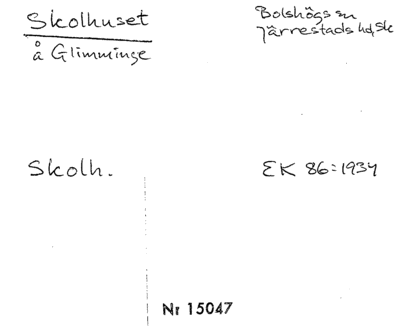 Skolhuset
å Glimminge
Bolshögs sn
Järrestads hd, Sk
Skolh.
EK 86:1934
Nr 15047